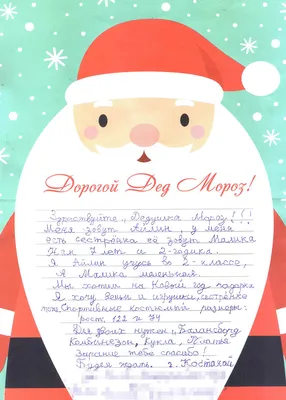 Дорогой Дед Мороз!
Здраствуйте, Дедушка Мороз!!!
Меня зовут Айлин, у меня
есть сестрёнка её зовут Малика
Нам 7 лет и 2-годика.
Я Айлин учусь во 2-классе,
А Малика маленькая.
Мы хотим на Новый год подарки
Я хочу вещи и игрушки, сестрёнке
тоже. Спортивные костюмы размеры:
рост. 122 и 74
Для двоих нужен „Балансборд
Комбинезон, Кукла, Платья
Заранее тебе спасибо!
Будем ждать. г. Костанай